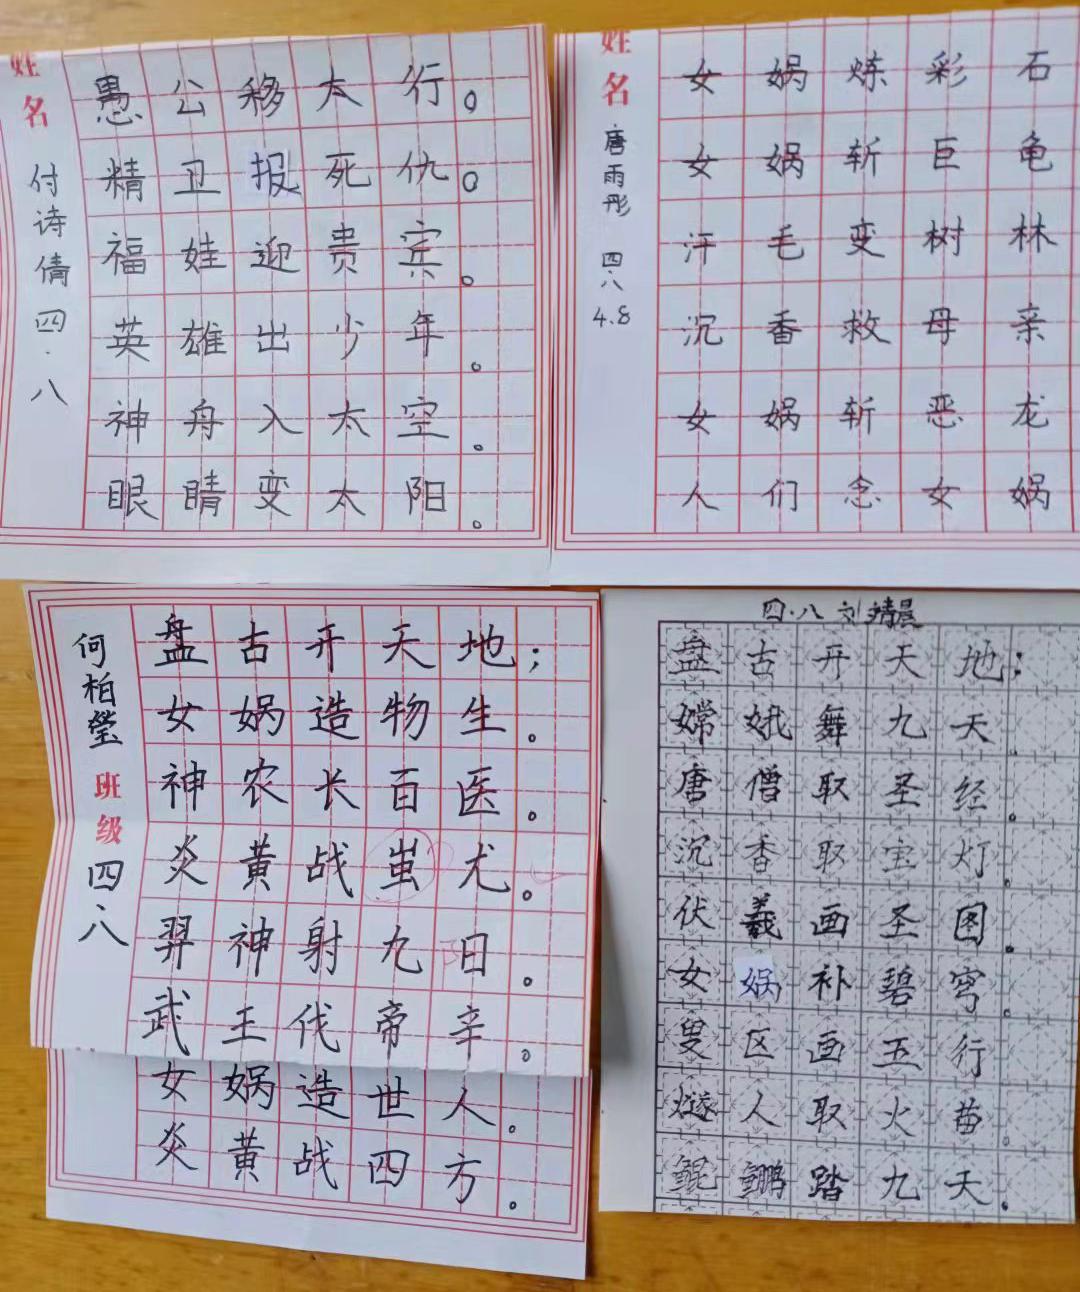 姓名 付诗倩 四.八
愚公移太行。
精卫报死仇。
福娃迎贵宾。
英雄出少年。
神舟入太空。
眼睛变太阳。
姓名 唐雨彤 四八 4.8
女娲炼彩石
女娲斩巨龟
汗毛变树林
沉香救母亲
女娲斩恶龙
人们念女娲
何柏莹 班级 四八
盘古开天地；
女娲造物生。
神农长百医。
炎黄战蚩尤。
羿神射九日。
武王伐帝辛。
女娲造世人。
炎黄战四方。
四.八 刘婧晨
盘古开天地；
嫦娥舞九天。
唐僧取圣经。
沉香取宝灯。
伏羲画圣图。
女娲补碧穹。
叟区画五行
燧人取火苗。
鲲鹏踏九天。